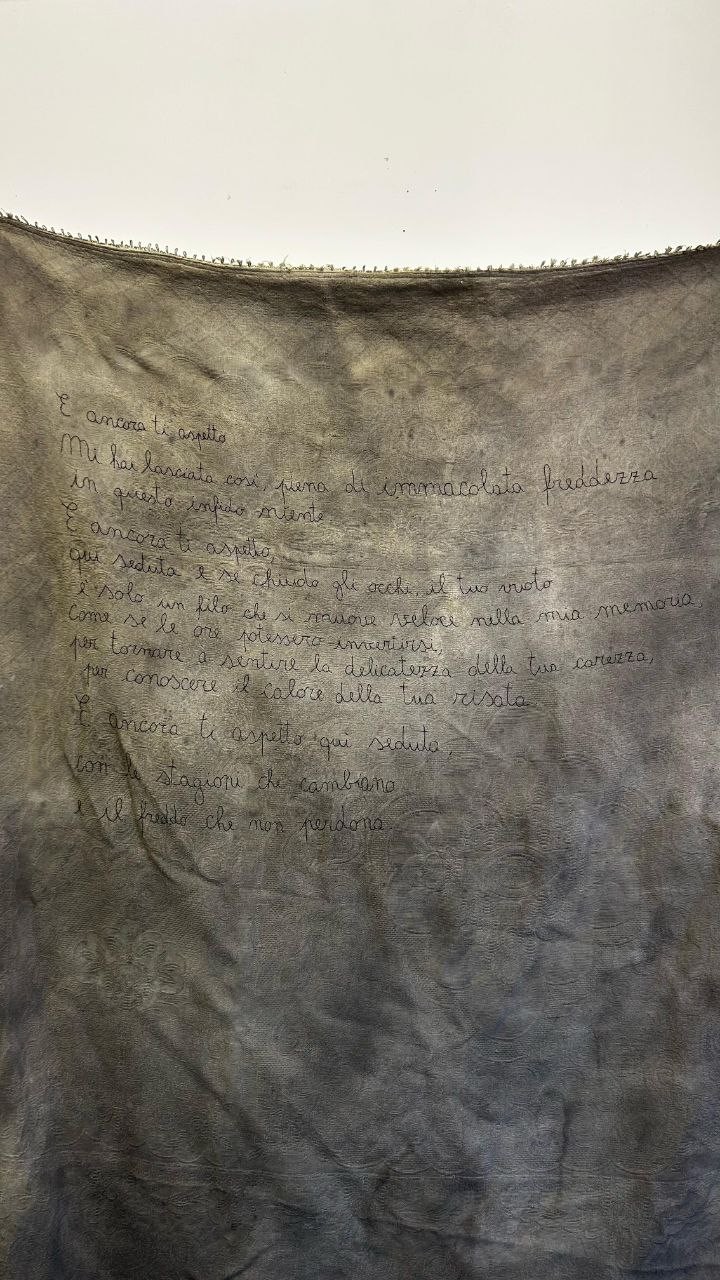 E ancora ti aspetto
Mi hai lasciata così, piena di immacolata freddezza
in questo infido niente
E ancora ti aspetto,
qui seduta e se chiudo gli occhi, il tuo vuoto
è solo un filo che si muove veloce nella mia memoria,
come se le ore potessero invertirsi,
per tornare a sentire la delicatezza della tua carezza,
per conoscere il calore della tua risata
E ancora ti aspetto qui seduta,
con le stagioni che cambiano
e il freddo che non perdona.